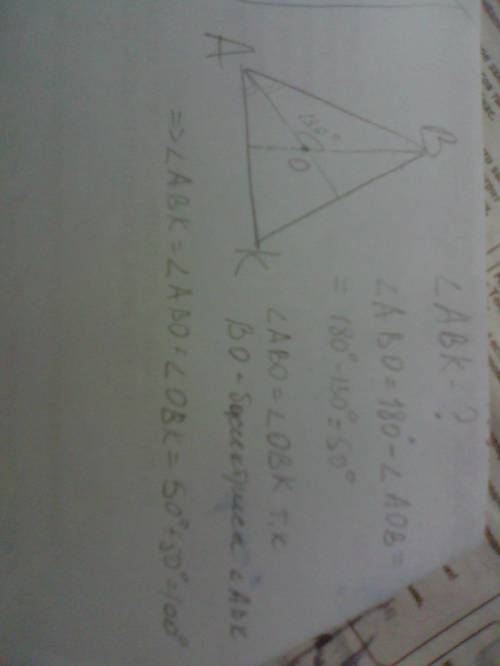 A
B
130°
O
K
∠ABK - ?
∠ABO = 180° - ∠AOB =
= 180° - 130° = 50°
∠ABO = ∠OBK т.к
BO - биссектриса ∠ABK
=> ∠ABK = ∠ABO = ∠OBK = 50° + 50° = 100°